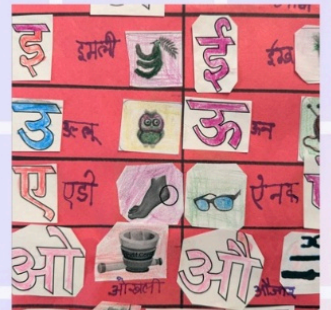 इ इमली ई ईख
उ उल्लू ऊ ऊन
ए एडी ऐनक
ओ ओखली औ औजार